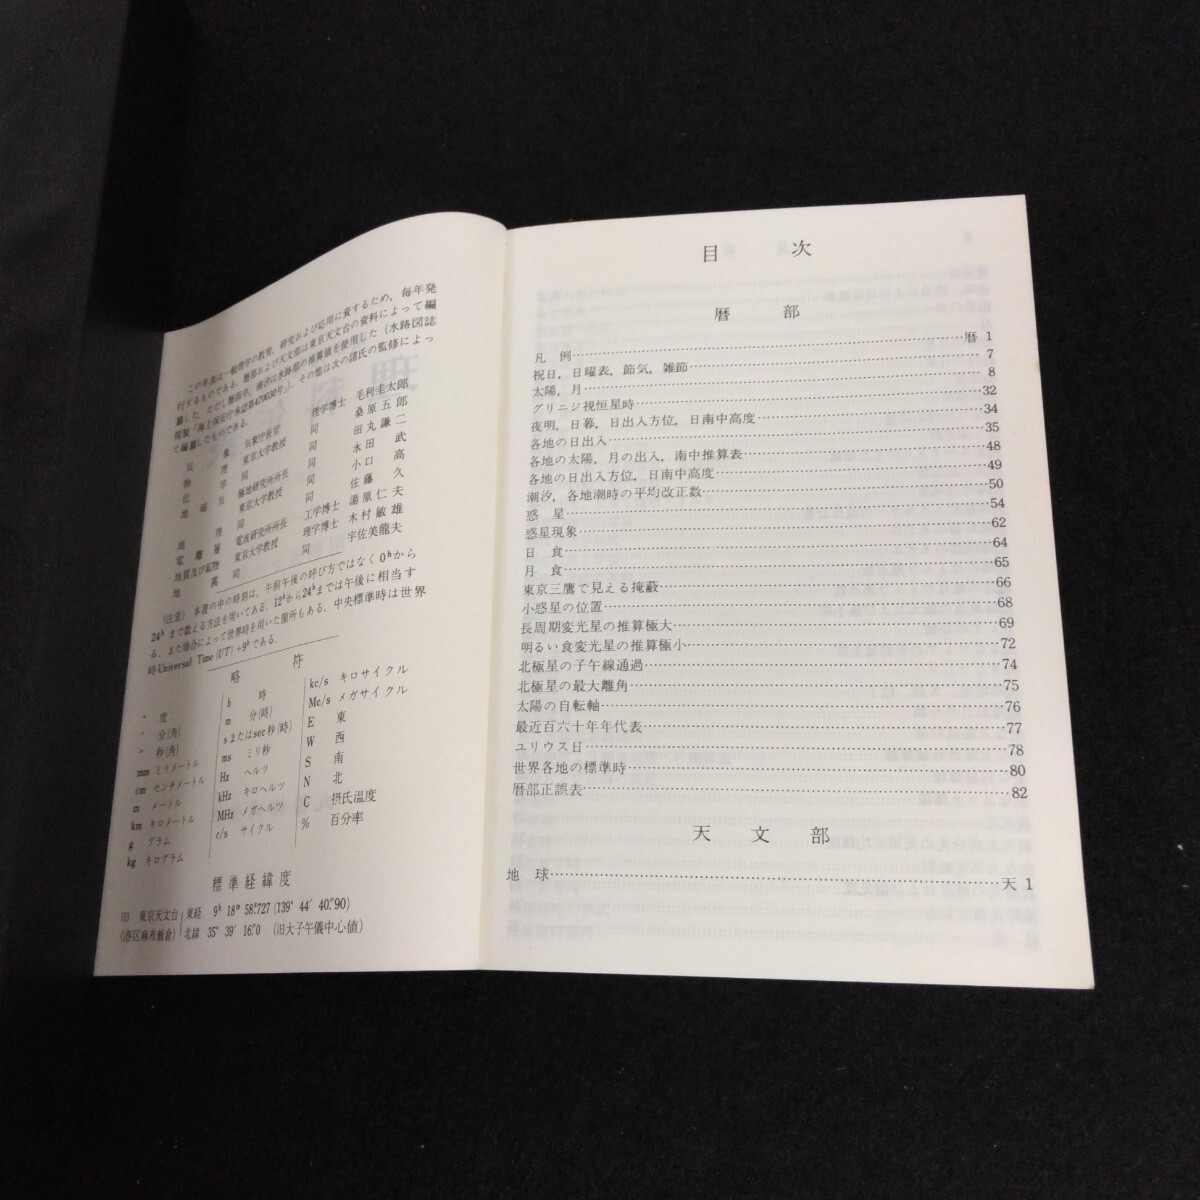 この年表は一般理学の教育, 研究および応用に資するため, 毎年発
行するものである. 暦部および天文部は東京天文台の資料によって編
纂した. ただし暦部中, 潮汐は水路部の推算値を使用した (水路図誌
複製「海上保安庁承認第470030号」). その他は次の諸氏の監修によっ
て編纂したものである.
気象 気象庁長官 理学博士 毛利圭太郎
物理 東京大学教授 同 桑原五郎
化学 同 同 田丸謙二
地磁気 極地研究所所長 同 永田武
東京大学教授 同 小口高
地理 同 同 佐藤久
電離層 電波研究所所長 工学博士 湯原仁夫
地質及び鉱物 東京大学教授 理学博士 木村敏雄
地震 同 同 宇佐美龍夫
(注意) 本書の中の時刻は, 午前午後の呼び方ではなく0ʰから
24ʰまで数える方法を用いてある. 12ʰから24ʰまでは午後に相当す
る. また場合によって世界時を用いた箇所もある. 中央標準時は世界
時 Universal Time (UT) +9ʰである.
略符
° 度
′ 分(角)
″ 秒(角)
mm ミリメートル
cm センチメートル
m メートル
km キロメートル
g グラム
kg キログラム
h 時
m 分(時)
sまたはsec 秒(時)
ms ミリ秒
Hz ヘルツ
kHz キロヘルツ
MHz メガヘルツ
c/s サイクル
kc/s キロサイクル
Mc/s メガサイクル
E 東
W 西
S 南
N 北
C 摂氏温度
% 百分率
標準経緯度
旧 東京天文台 東経 9ʰ 18ᵐ 58ˢ.727 (139° 44′ 40″.90)
(港区麻布飯倉) 北緯 35° 39′ 16″.0 (旧大子午儀中心値)
目次
暦部
凡例……暦 1
祝日, 日曜表, 節気, 雑節……7
太陽, 月……8
グリニジ視恒星時……32
夜明, 日暮, 日出入方位, 日南中高度……34
各地の日出入……35
各地の太陽, 月の出入, 南中推算表……48
各地の日出入方位, 日南中高度……49
潮汐, 各地潮時の平均改正数……50
惑星……54
惑星現象……62
日食……64
月食……65
東京三鷹で見える掩蔽……66
小惑星の位置……68
長周期変光星の推算極大……69
明るい食変光星の推算極小……72
北極星の子午線通過……74
北極星の最大離角……75
太陽の自転軸……76
最近百六十年年代表……77
ユリウス日……78
世界各地の標準時……80
暦部正誤表……82
天文部
地球……天 1